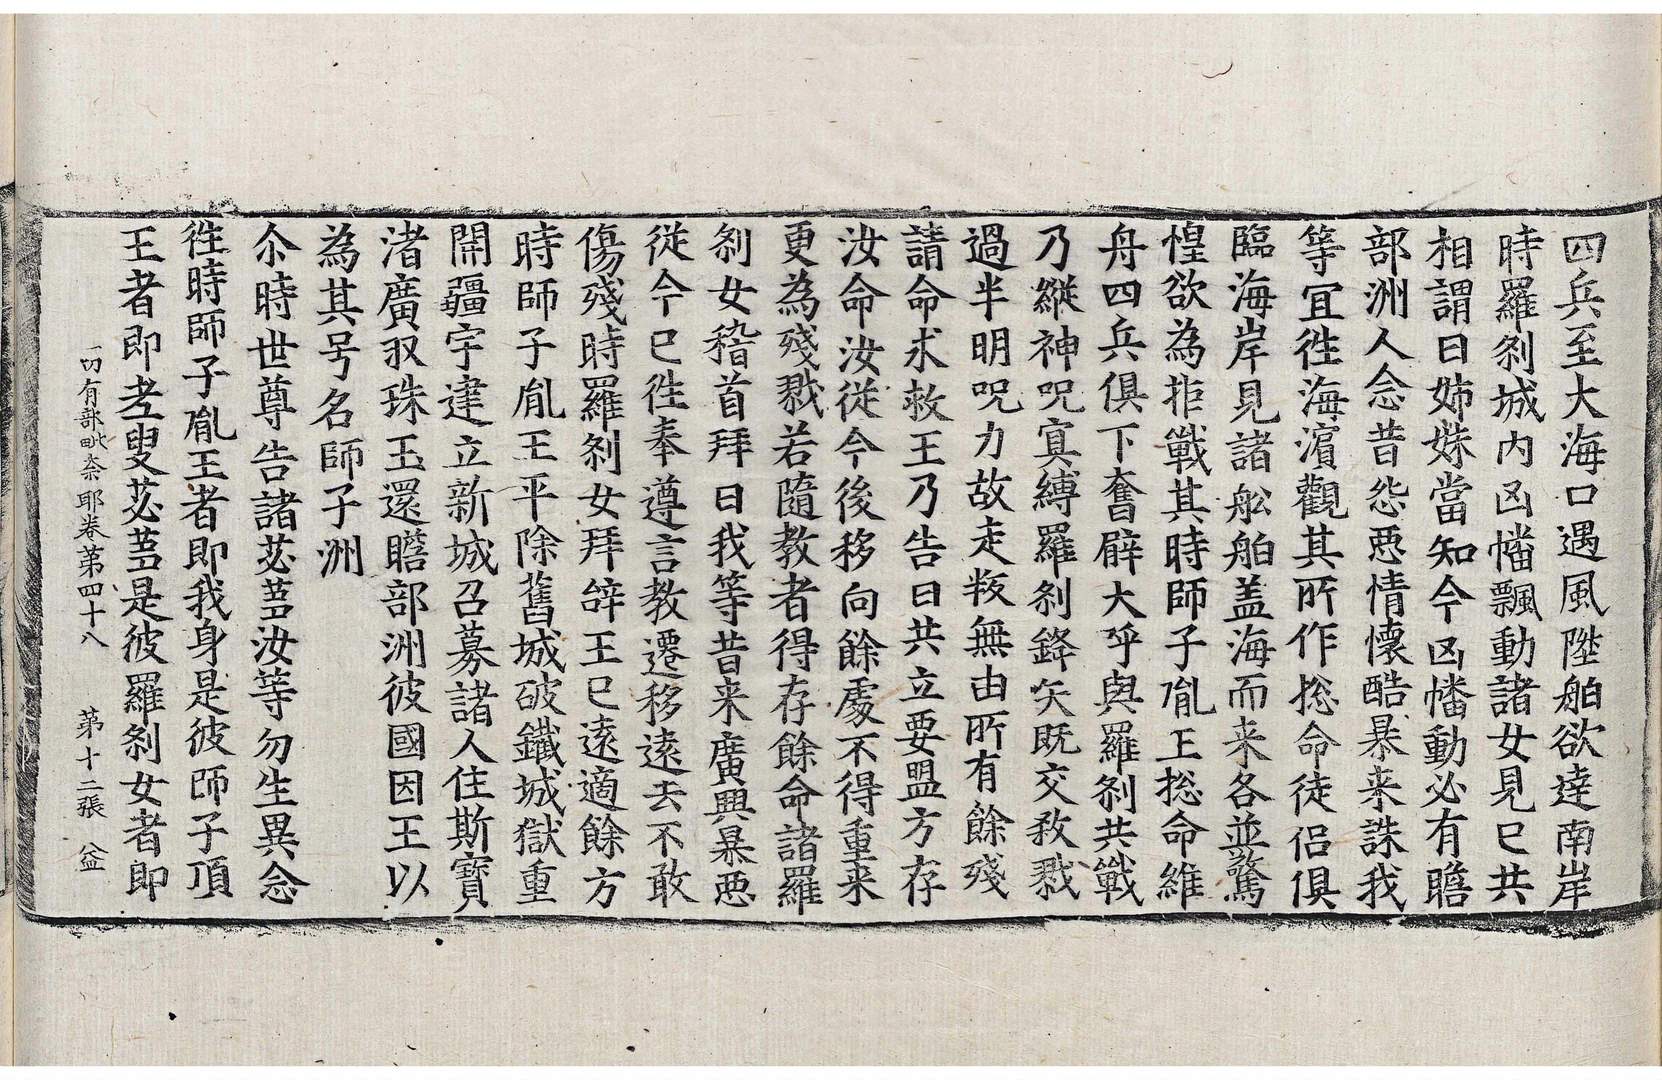 四兵至大海口遇風陞舶欲達南岸
時羅刹城内凶幡飄動諸女見已共
相謂曰姊妹當知今凶幡動必有瞻
部洲人念昔怨惡情懷酷暴来誅我
等宜徃海濵觀其所作捴命徒侣俱
臨海岸見諸舩舶盖海而来各並驚
惶欲為拒戰其時師子胤王捴命維
舟四兵俱下奮臂大呼與羅刹共戰
乃縱神呪寘縛羅刹鋒矢既交救戮
過半明呪力故走叛無由所有餘殘
請命求救王乃告曰共立要盟方存
汝命汝從今後移向餘處不得重来
更為殘戮若隨教者得存餘命諸羅
刹女稽首拜曰我等昔来廣興暴惡
從今已徃奉遵言教遷移遠去不敢
傷殘時羅刹女拜辝王已遠適餘方
時師子胤王平除舊城破鐵城獄重
開疆宇建立新城召募諸人住斯寶
渚廣収珠玉還瞻部洲彼國因王以
為其号名師子洲
尒時世尊告諸苾蒭汝等勿生異念
徃時師子胤王者即我身是彼師子頂
王者即老叟苾蒭是彼羅刹女者即
一切有部毗奈耶卷第四十八　第十二張　益